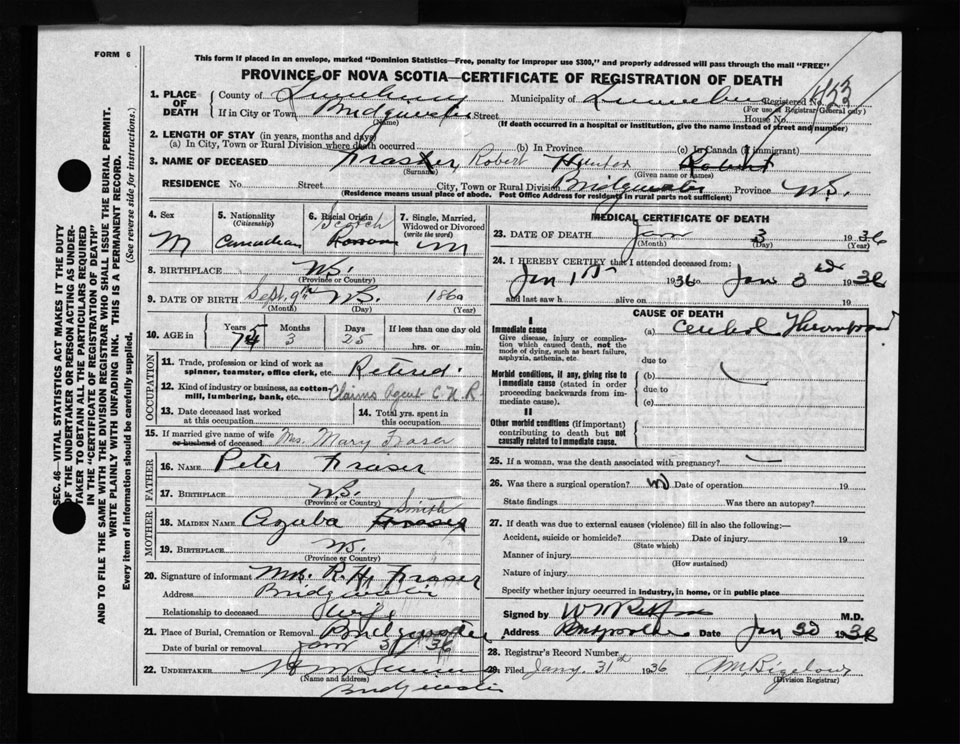 FORM 6
This form if placed in an envelope, marked "Dominion Statistics—Free, penalty for improper use $300," and properly addressed will pass through the mail "FREE"
PROVINCE OF NOVA SCOTIA—CERTIFICATE OF REGISTRATION OF DEATH
SEC. 46—VITAL STATISTICS ACT MAKES IT THE DUTY
OF THE UNDERTAKER OR PERSON ACTING AS UNDER-
TAKER TO OBTAIN ALL THE PARTICULARS REQUIRED
IN THE "CERTIFICATE OF REGISTRATION OF DEATH"
AND TO FILE THE SAME WITH THE DIVISION REGISTRAR WHO SHALL ISSUE THE BURIAL PERMIT.
WRITE PLAINLY WITH UNFADING INK. THIS IS A PERMANENT RECORD.
Every item of information should be carefully supplied. (See reverse side for instructions.)
1. PLACE OF DEATH
County of Lunenburg Municipality of Lunenburg Registered No. 423
(For use of Registrar General only)
If in City or Town Bridgewater Street House No.
(Name) (If death occurred in a hospital or institution, give the name instead of street and number)
2. LENGTH OF STAY (in years, months and days)
(a) In City, Town or Rural Division where death occurred (b) In Province (c) In Canada (if immigrant)
3. NAME OF DECEASED Fraser, Robert Hunter Robert
(Surname) (Given name or names)
RESIDENCE No. Street City, Town or Rural Division Bridgewater Province N.S.
(Residence means usual place of abode. Post Office Address for residents in rural parts not sufficient)
4. Sex
M
5. Nationality
(Citizenship)
Canadian
6. Racial Origin
Scotch
7. Single, Married, Widowed or Divorced
(write the word)
M
8. BIRTHPLACE N.S.
(Province or Country)
9. DATE OF BIRTH Sept. 9th N.S. 1860
(Month) (Day) (Year)
10. AGE in
Years Months Days If less than one day old
75 3 25 hrs. or min.
OCCUPATION
11. Trade, profession or kind of work as spinner, teamster, office clerk, etc. Retired
12. Kind of industry or business, as cotton mill, lumbering, bank, etc. Claims Agent C.N.R.
13. Date deceased last worked at this occupation
14. Total yrs. spent in this occupation
15. If married give name of wife or husband of deceased Mrs. Mary Fraser
FATHER
16. NAME Peter Fraser
17. BIRTHPLACE N.S.
(Province or Country)
MOTHER
18. MAIDEN NAME Azuba Fraser Smith
19. BIRTHPLACE N.S.
(Province or Country)
20. Signature of informant Mrs. R. H. Fraser
Address Bridgewater
Relationship to deceased Wife
21. Place of Burial, Cremation or Removal Bridgewater
Date of burial or removal Jan 1936
22. UNDERTAKER
(Name and address)
Bridgewater
MEDICAL CERTIFICATE OF DEATH
23. DATE OF DEATH Jan 3 1936
(Month) (Day) (Year)
24. I HEREBY CERTIFY that I attended deceased from:
Jan 1st 1936 to Jan 3rd 1936
and last saw h alive on 19
CAUSE OF DEATH
I
Immediate cause
Give disease, injury or complication which caused death, not the mode of dying, such as heart failure, asphyxia, asthenia, etc.
(a) Cerebral Thrombosis
due to
Morbid conditions, if any, giving rise to immediate cause (stated in order proceeding backwards from immediate cause).
(b)
due to
(c)
II
Other morbid conditions (if important) contributing to death but not causally related to immediate cause.
25. If a woman, was the death associated with pregnancy?
26. Was there a surgical operation? No Date of operation 19
State findings Was there an autopsy?
27. If death was due to external causes (violence) fill in also the following:—
Accident, suicide or homicide? Date of injury 19
(State which)
Manner of injury
(How sustained)
Nature of injury
Specify whether injury occurred in industry, in home, or in public place
Signed by M.D.
Address Bridgewater Date Jan 3d 1936
28. Registrar's Record Number
29. Filed Jany. 31st 1936 A.M. Bigelow
(Division Registrar)